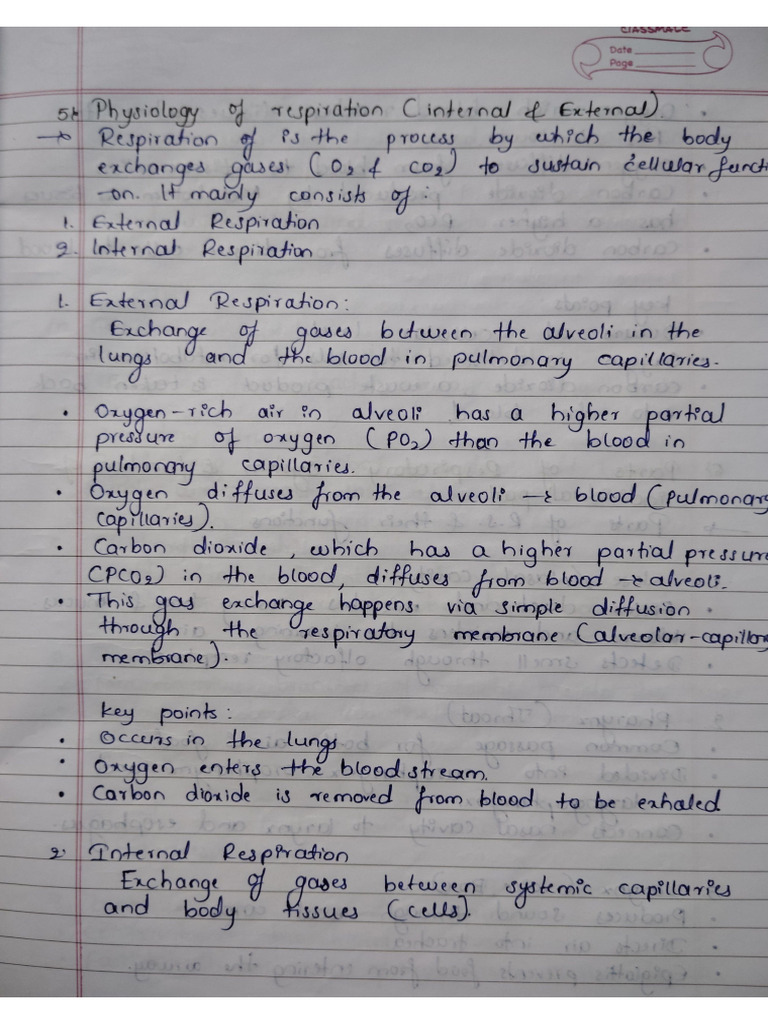 CLASSMATE
Date
Page
5. Physiology of respiration (internal & External).
→ Respiration of is the process by which the body
exchanges gases (O2 & CO2) to sustain cellular functi
-on. It mainly consists of:
1. External Respiration
2. Internal Respiration
1. External Respiration:
Exchange of gases between the alveoli in the
lungs and the blood in pulmonary capillaries.
• Oxygen-rich air in alveoli has a higher partial
pressure of oxygen (PO2) than the blood in
pulmonary capillaries.
• Oxygen diffuses from the alveoli → blood (pulmonary
capillaries).
• Carbon dioxide, which has a higher partial pressure
(PCO2) in the blood, diffuses from blood → alveoli.
• This gas exchange happens via simple diffusion
through the respiratory membrane (alveolar-capillary
membrane).
Key points:
• Occurs in the lungs
• Oxygen enters the blood stream.
• Carbon dioxide is removed from blood to be exhaled
2. Internal Respiration
Exchange of gases between systemic capillaries
and body tissues (cells).